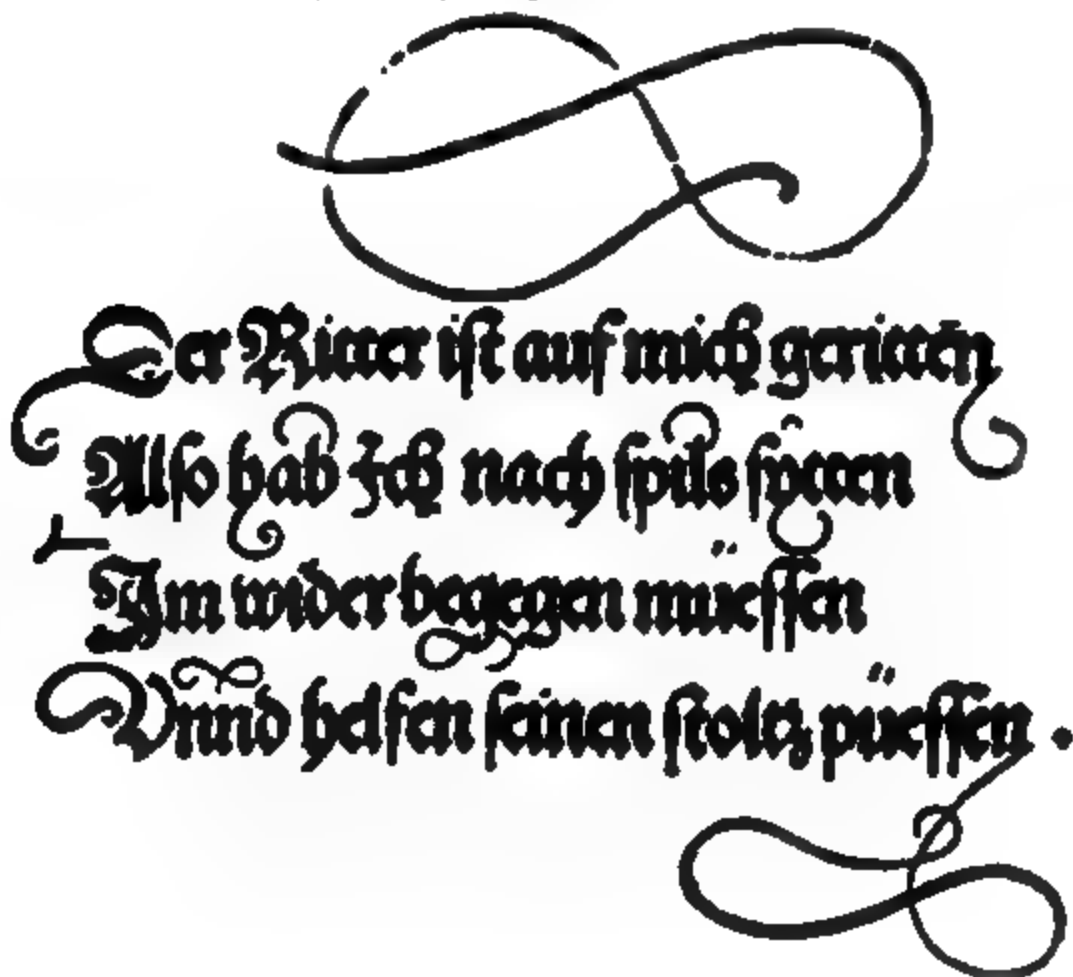 Der Ritter ist auf mich geritten
Also hab Ich nach spils sytten
Im wider begegen müessen
Vnnd helfen seinen stoltz püessen .